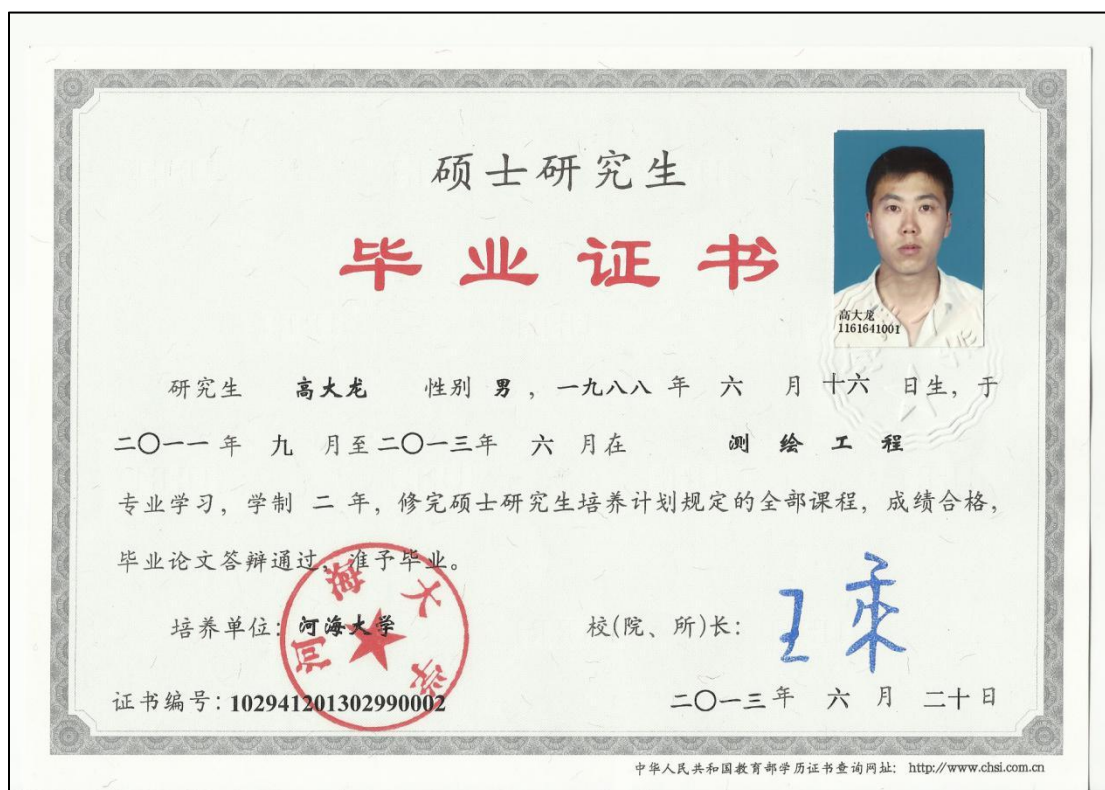 硕士研究生
毕业证书
高大龙
1161641001
研究生 高大龙 性别 男 ，一九八八 年 六 月 十六 日生，于
二〇一一 年 九 月至 二〇一三年 六 月在 测 绘 工 程
专业学习，学制 二 年，修完硕士研究生培养计划规定的全部课程，成绩合格，
毕业论文答辩通过，准予毕业。
培养单位：河海大学
河海大学
校(院、所)长：
证书编号：102941201302990002
二〇一三 年 六 月 二十 日
中华人民共和国教育部学历证书查询网址： http://www.chsi.com.cn